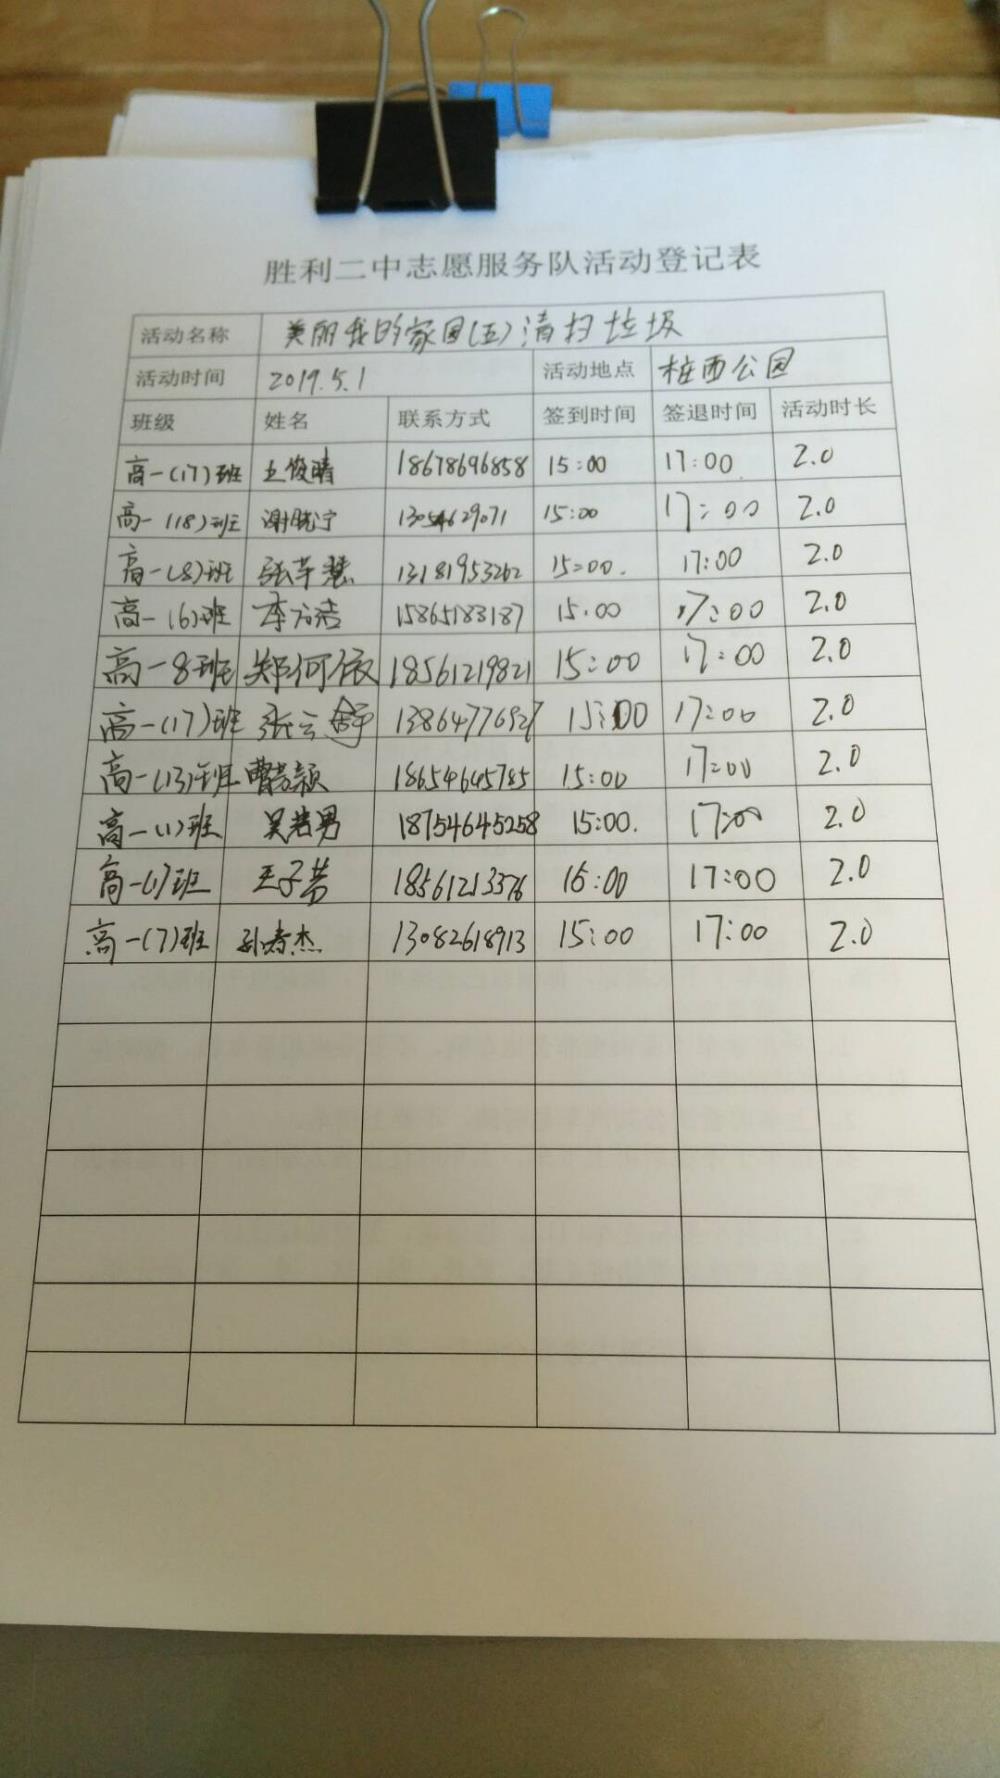 胜利二中志愿服务队活动登记表
活动名称 美丽我的家园(五)清扫垃圾
活动时间 2019.5.1 活动地点 桩西公园
班级 姓名 联系方式 签到时间 签退时间 活动时长
高一(17)班 王俊晴 18678696858 15:00 17:00 2.0
高一(18)班 谢晓宁 13054629071 15:00 17:00 2.0
高一(8)班 张芊慧 13181953262 15:00. 17:00 2.0
高一(6)班 李方洁 15865183187 15:00 17:00 2.0
高一8班 郑何依 18561219821 15:00 17:00 2.0
高一(17)班 张云舒 13864776927 15:00 17:00 2.0
高一(13)班 曹芸颖 18654645785 15:00 17:00 2.0
高一(1)班 吴若男 18754645258 15:00. 17:00 2.0
高一(1)班 王子芸 18561213376 15:00 17:00 2.0
高一(7)班 孙春杰 13082618913 15:00 17:00 2.0